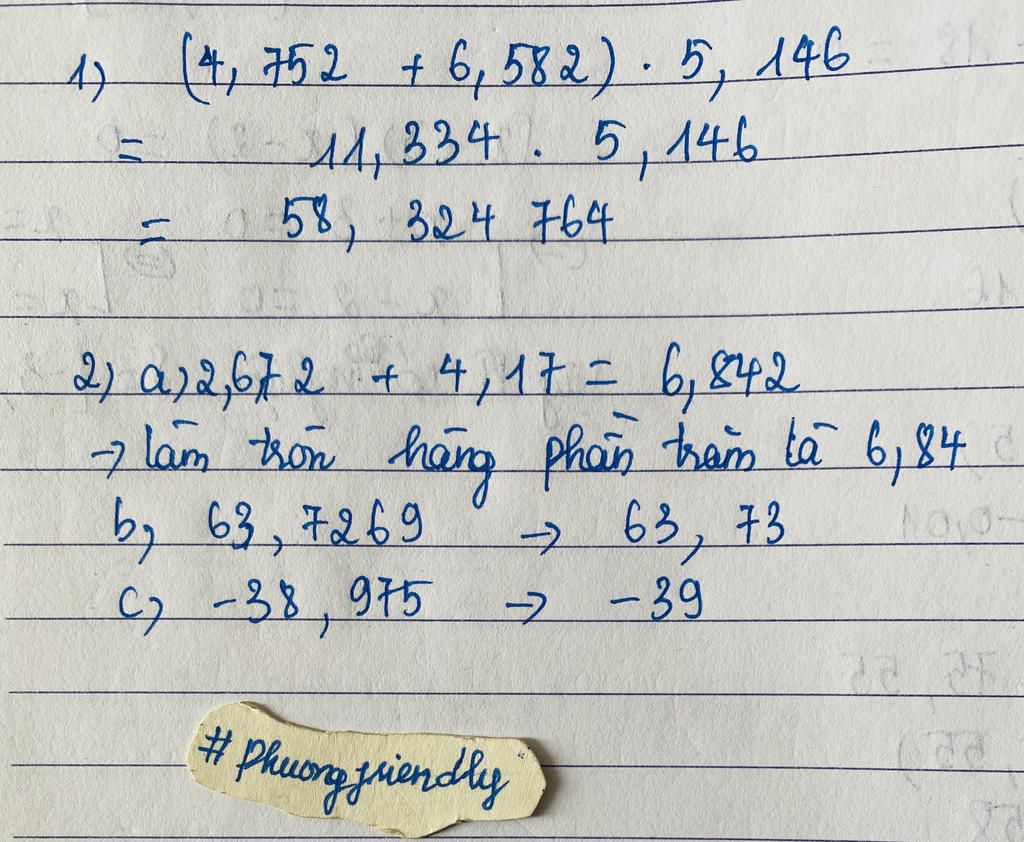 1) (4,752 + 6,582) . 5,146
= 11,334 . 5,146
= 58,324 764
2) a) 2,672 + 4,17 = 6,842
→ làm tròn hàng phần trăm là 6,84
b, 63,7269 → 63,73
c, -38,975 → -39
#Phuongfriendly